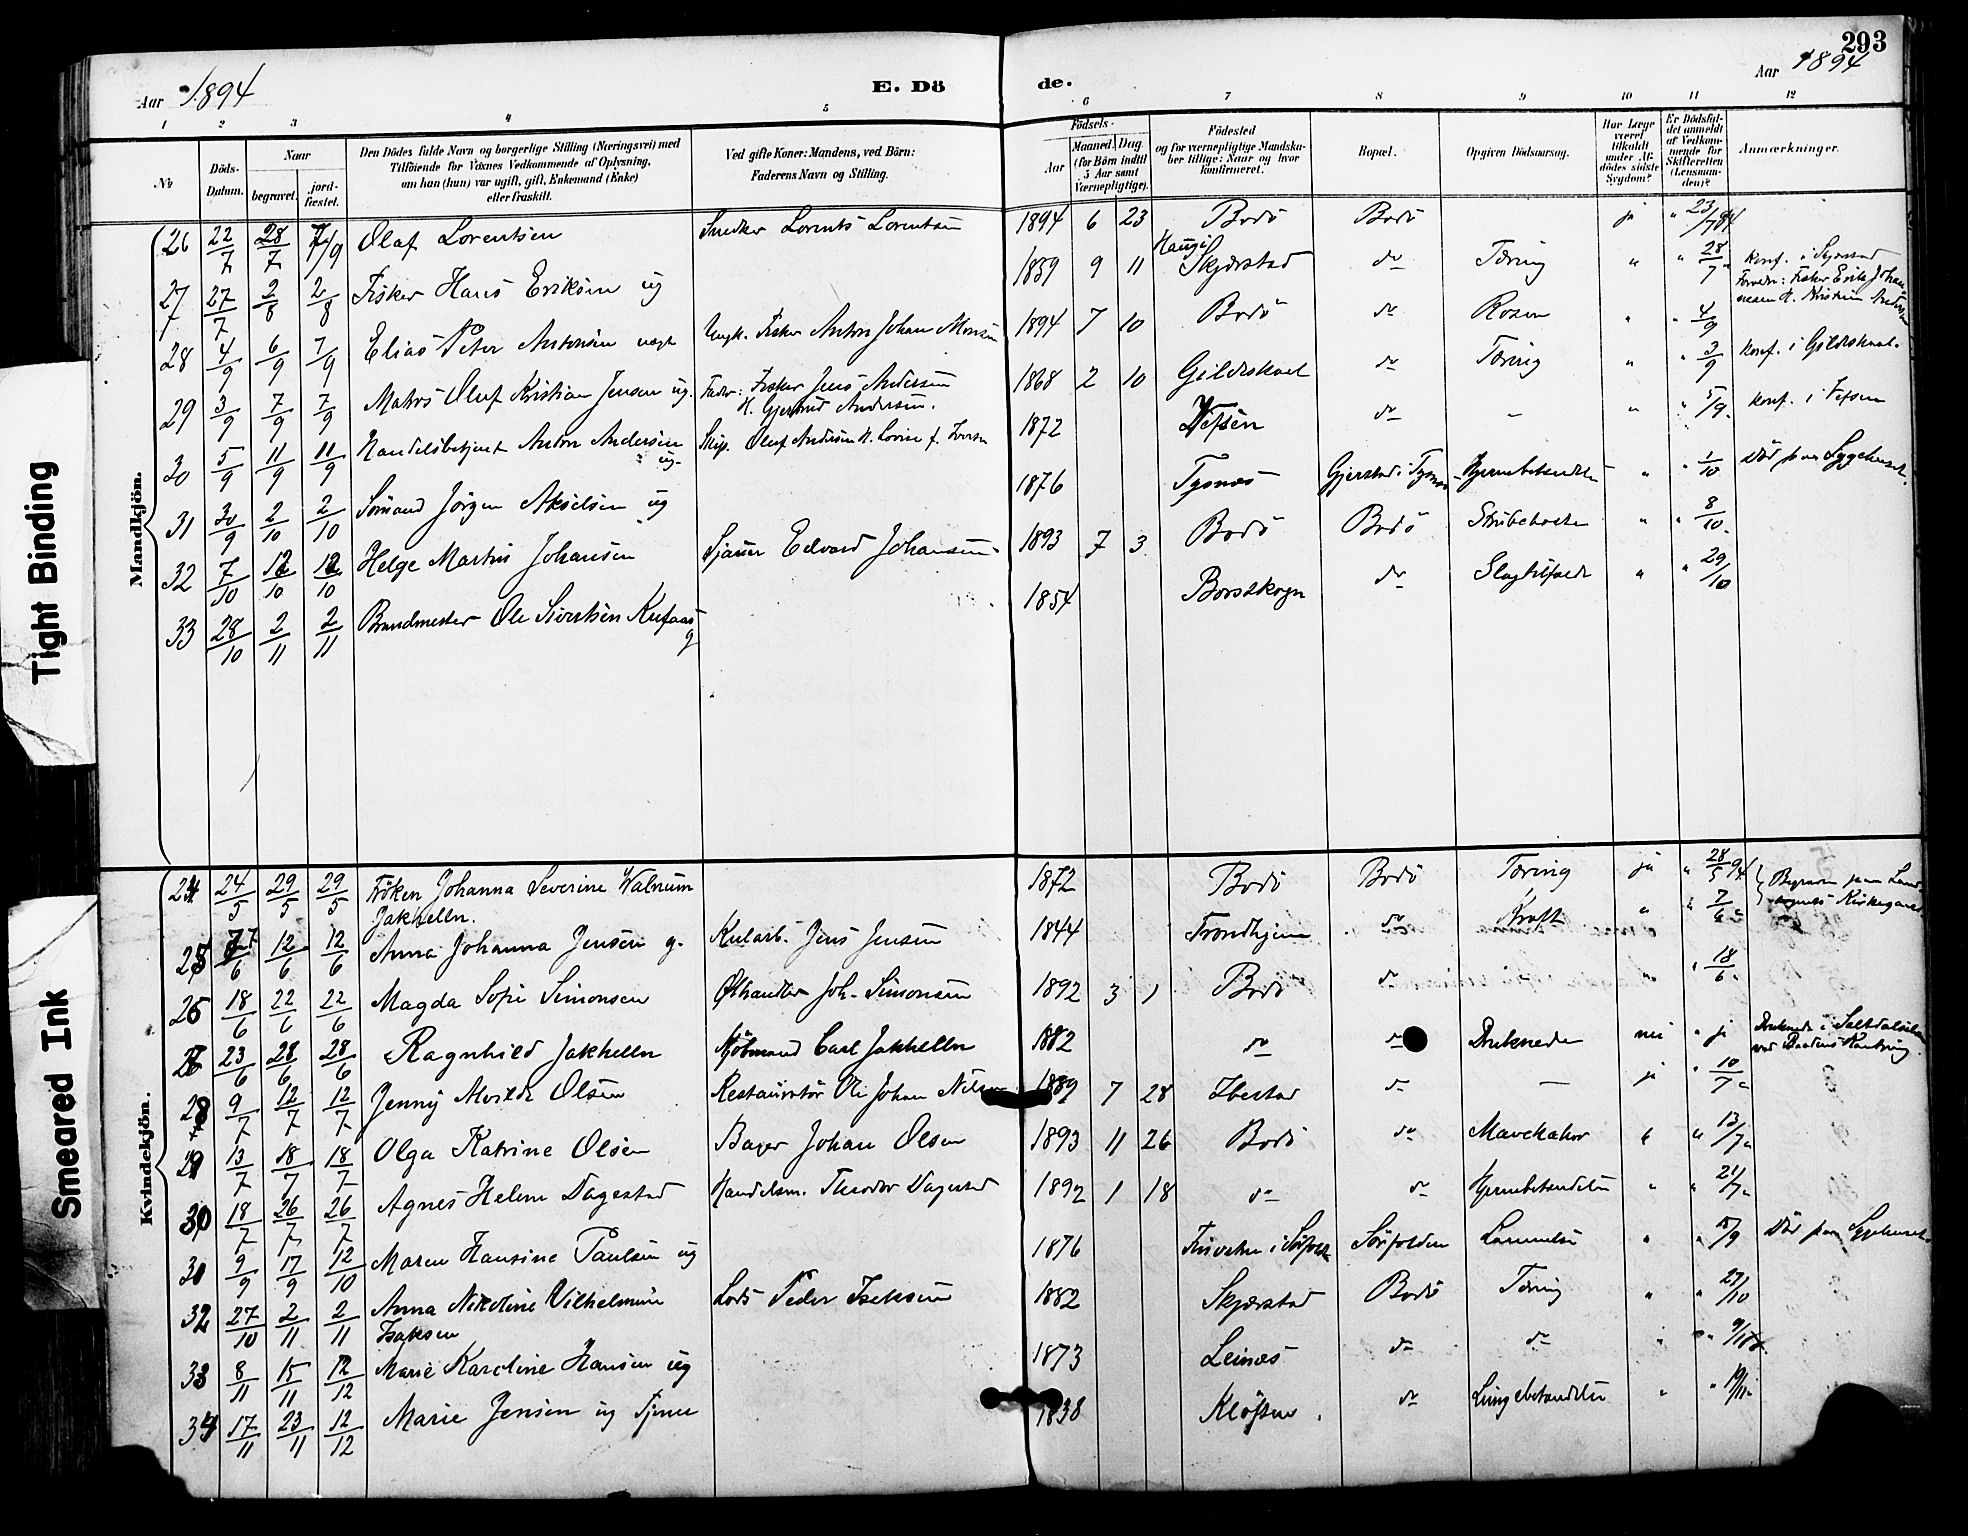 293
Aar 1894
E. Dö de.
Aar 1894
1 2 3 4 5 6 7 8 9 10 11 12
No
Döds-Datum.
Naar
begravet.
jord-fæstet.
Den Dödes fulde Navn og borgerlige Stilling (Næringsvei) med
Tilföiende for Voxnes Vedkommende af Oplysning,
om han (hun) var ugift, gift, Enkemand (Enke)
eller fraskilt.
Ved gifte Koner: Mandens, ved Börn:
Faderens Navn og Stilling.
Födsels-
Aar
Maaned. Dag.
(for Börn indtil
5 Aar samt
Værnepligtige).
Födested
og for værnepligtige Mandska-
ber tillige: Naar og hvor
konfirmeret.
Bopæl.
Opgiven Dödsaarsag.
Har Læge
været
tilkaldt
under Af-
dödes sidste
Sygdom?
Er Dödsfal-
det anmeldt
af Vedkom-
mende for
Skifteretten
(Lensman-
den)?
Anmærkninger.
Mandkjön.
26 22/7 28/7 7/9 Olaf Lorentsen Snedker Lorents Lorentsen 1894 6 23 Bodö Bodö ja " 23/7 94
27 27/7 2/8 2/8 Fisker Hans Eriksen ug 1859 9 11 Skjerstad do Tæring " " 28/7 Konf. i Skjerstad
28 4/9 6/9 7/9 Elias Peter Antonsen uægt Ungk. Fisker Anton Johan Monsen 1894 7 10 Bodö do Rosen " " 4/9
29 3/9 7/9 7/9 Matros Oluf Kristian Jensen ug. Fader: Fisker Jens Andersen
H. Gjertrud Andersen. 1868 2 10 Gildeskaal do Tæring " " 3/9 Konf. i Gildeskaal.
30 5/9 11/9 11/9 Handelsbetjent Anton Andersen ug. Skip. Oluf Andersen H. Lovise f. Iversen 1872 Vefsen do - " " 5/9. Konf. i Vefsen
31 30/9 2/10 2/10 Sömand Jörgen Akselsen ug 1876 Tysnæs Gjerstad i Tysnæs Hjernebetændelse " " 1/10 Död paa Sygehuset.
32 7/10 12/10 12/10 Helge Martin Johansen Sjauer Edvard Johansen 1893 7 3 Bodö Bodö Strubehoste " " 8/10.
33 28/10 2/11 2/11 Brandmester Ole Sivertsen g 1854 do Slagtilfælde " " 29/10
Kvindekjön.
24 24/5 29/5 29/5 Fröken Johanna Severine Walnum
Jakhelln. 1872 Bodö Bodö Tæring ja " 28/5 94
25 7/6 12/6 12/6 Anna Johanna Jensen g. Kularb. Jens Jensen 1844 Trondhjem do Kræft " " 7/6
26 18/6 22/6 22/6 Magda Sofie Simonsen Ølhandler Joh. Simonsen 1892 3 1 Bodö do " " 18/6.
27 23/6 28/6 28/6 Ragnhild Jakhelln Kjöbmand Carl Jakhelln 1882 do do Druknede nei " ja Druknede i Saltdalselven
ved Baadens Kantring.
28 9/7 12/7 12/7 Jenny Alvilde Olsen Restauratör Ole Johan 1889 7 28 Ibestad do - ja " 10/7
29 13/7 18/7 18/7 Olga Katrine Olsen Bager Johan Olsen 1893 11 26 Bodö do Mavekatar " " 13/7
30 18/7 26/7 26/7 Agnes Helene Dagestad Handelsm. Theodor Dagestad 1892 1 18 do do Hjernebetændelse " " 21/7
31 9/9 17/9 12/10 Maren Hansine Paulsen ug 1876 Sörfolden " " Död paa Sygehuset
32 27/10 2/11 2/11 Anna Nikoline Vilhelmine
Isaksen Lods Peder Isaksen 1882 Skjerstad Bodö Tæring " " 27/10
33 8/11 15/11 12/12 Marie Karoline Hansen ug 1873 Leines do do " " 9/11
34 17/11 23/11 12/12 Marie Jensen ug Tjener 1838 Klöften. do Lungebetændelse " " 19/11
Tight Binding
Smeared Ink